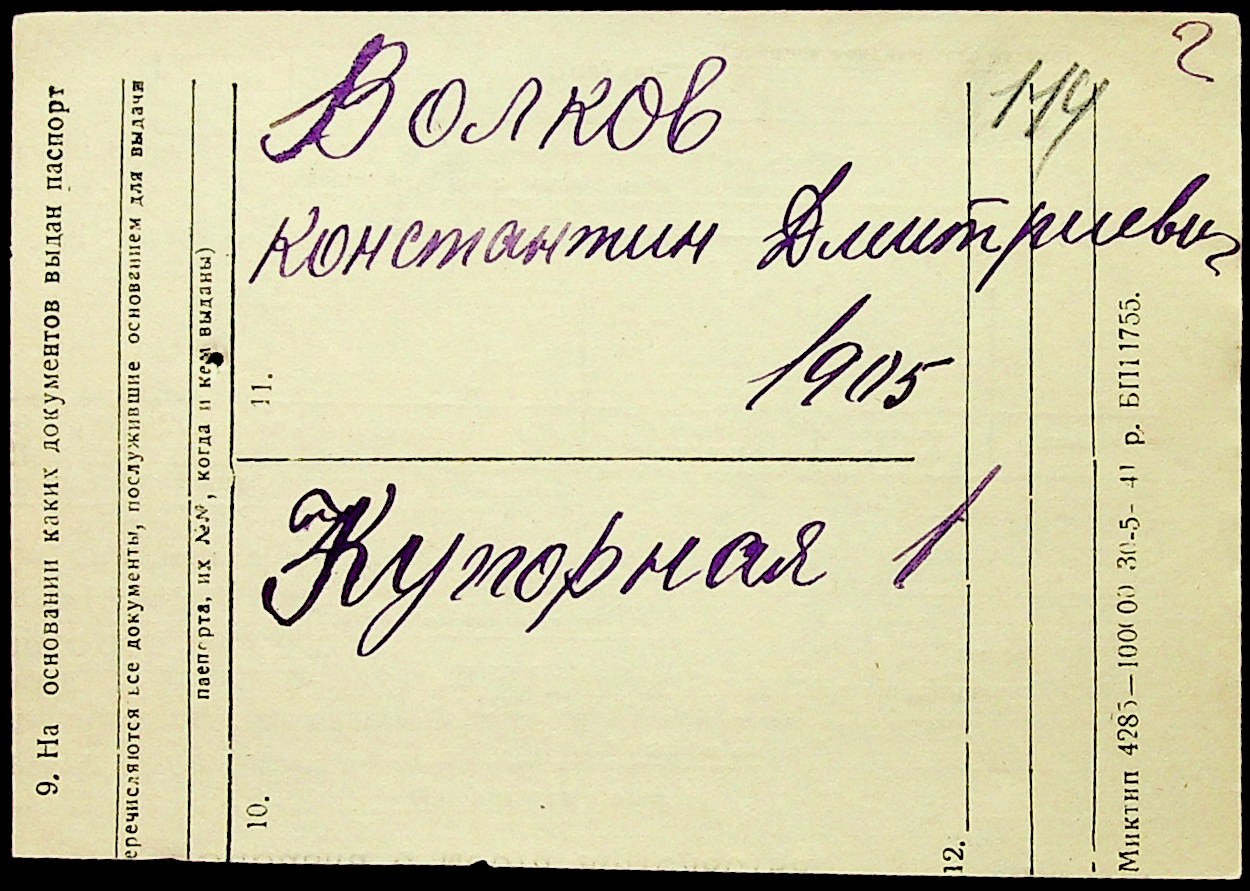 2
114
Волков
Константин Дмитриевич
1905
Купорная 1
9. На основании каких документов выдан паспорт
еречисляются все документы, послужившие основанием для выдачи
паспорта, их №№, когда и кем выданы)
11.
10.
12.
Миктип 4285—100000 30-5-41 р. БП11755.